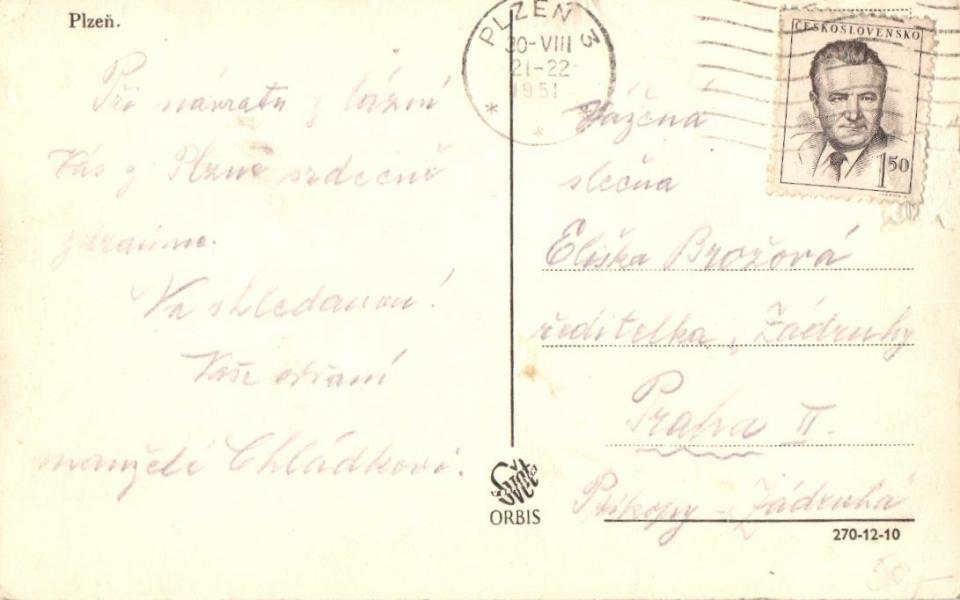 Plzeň.
Při návratu z lázní
Vás z Plzně srdečně
zdravíme.
Na shledanou!
Vaše oddaní
manželé Chládkovi.
PLZEŇ 3
30-VIII
21-22
1951
ČESKOSLOVENSKO
1 50
Vážená
slečna
Eliška Brožová
ředitelka „Zádruhy
Praha II.
Příkopy - „Zádruha"
Svět
ORBIS
270-12-10
50